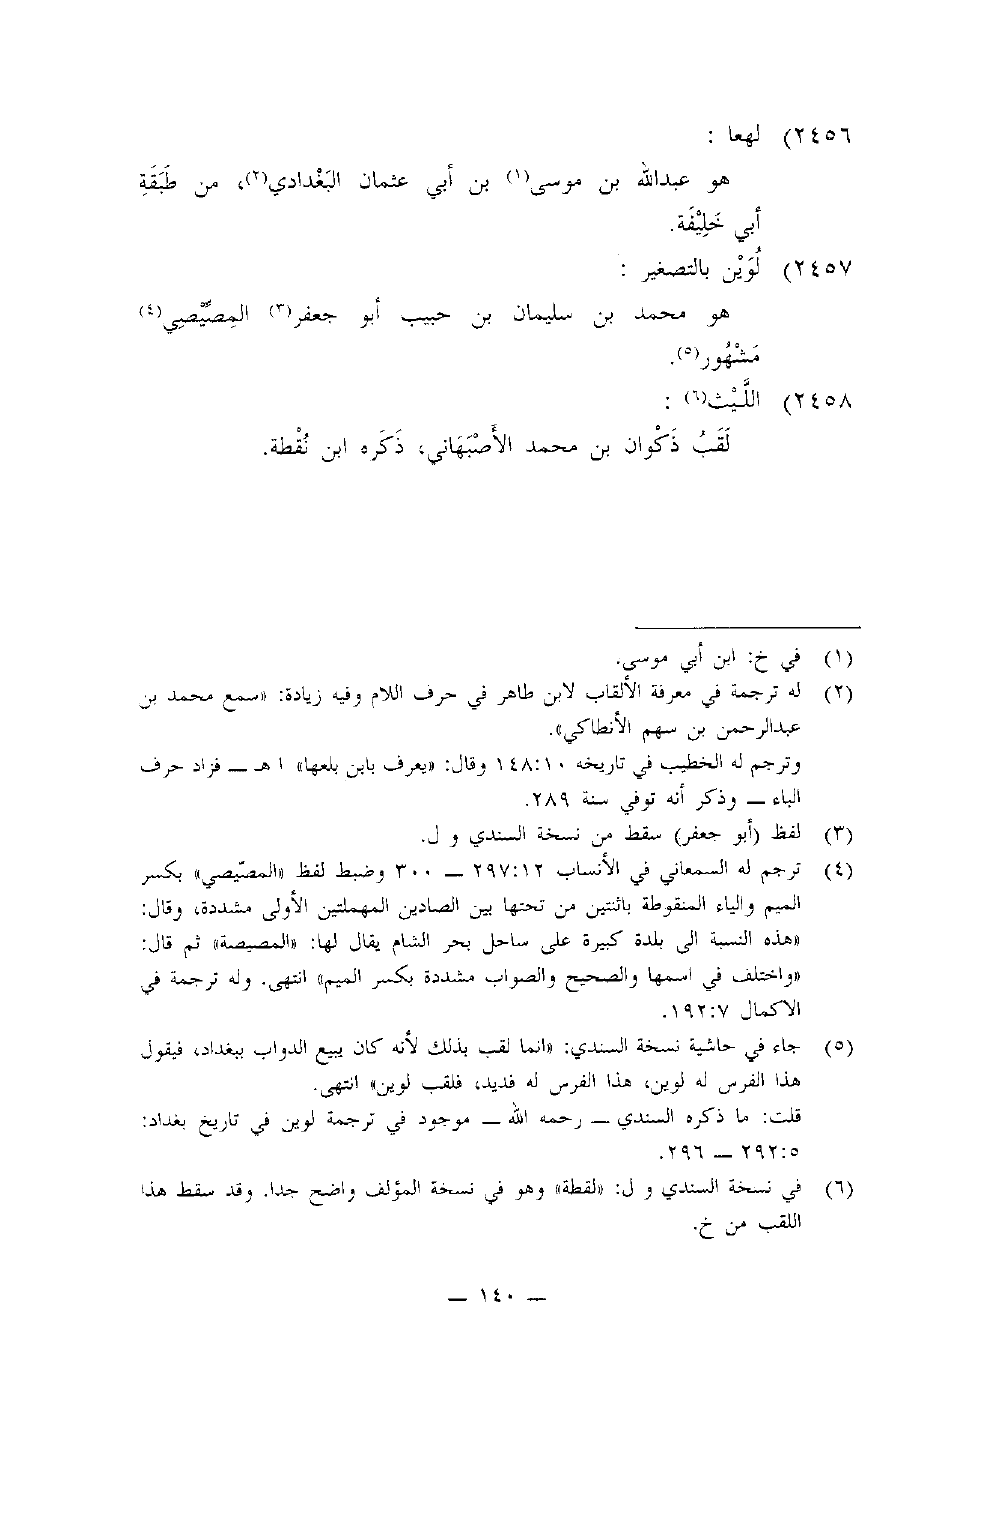 ٢٤٥٦) لهعا :
هو عبدالله بن موسى(١) بن أبي عثمان البَغْدادي(٢)، من طَبَقَةِ
أبي خَلِيْفَة.
٢٤٥٧) لُوَيْن بالتصغير :
هو محمد بن سليمان بن حبيب أبو جعفر(٣) المِصِّيْصِي(٤)
مَشْهُور(٥).
٢٤٥٨) اللَّيْث(٦) :
لَقَبُ ذَكْوان بن محمد الأَصْبَهَاني، ذَكَره ابن نُقْطة.
(١) في خ: ابن أبي موسى.
(٢) له ترجمة في معرفة الألقاب لابن طاهر في حرف اللام وفيه زيادة: «سمع محمد بن
عبدالرحمن بن سهم الأنطاكي».
وترجم له الخطيب في تاريخه ١٤٨:١٠ وقال: «يعرف بابن بلعها» ا هـ ــ فزاد حرف
الباء ــ وذكر أنه توفي سنة ٢٨٩.
(٣) لفظ (أبو جعفر) سقط من نسخة السندي و ل.
(٤) ترجم له السمعاني في الأنساب ٢٩٧:١٢ ــ ٣٠٠ وضبط لفظ «المصّيصي» بكسر
الميم والياء المنقوطة باثنتين من تحتها بين الصادين المهملتين الأولى مشددة، وقال:
«هذه النسبة الى بلدة كبيرة على ساحل بحر الشام يقال لها: «المصيصة» ثم قال:
«واختلف في اسمها والصحيح والصواب مشددة بكسر الميم» انتهى. وله ترجمة في
الاكمال ١٩٢:٧.
(٥) جاء في حاشية نسخة السندي: «انما لقب بذلك لأنه كان يبيع الدواب ببغداد، فيقول
هذا الفرس له لوين، هذا الفرس له فديد، فلقب لوين» انتهى.
قلت: ما ذكره السندي ــ رحمه الله ــ موجود في ترجمة لوين في تاريخ بغداد:
٢٩٢:٥ ــ ٢٩٦.
(٦) في نسخة السندي و ل: «لقطة» وهو في نسخة المؤلف واضح جدا. وقد سقط هذا
اللقب من خ.
ــ ١٤٠ ــ